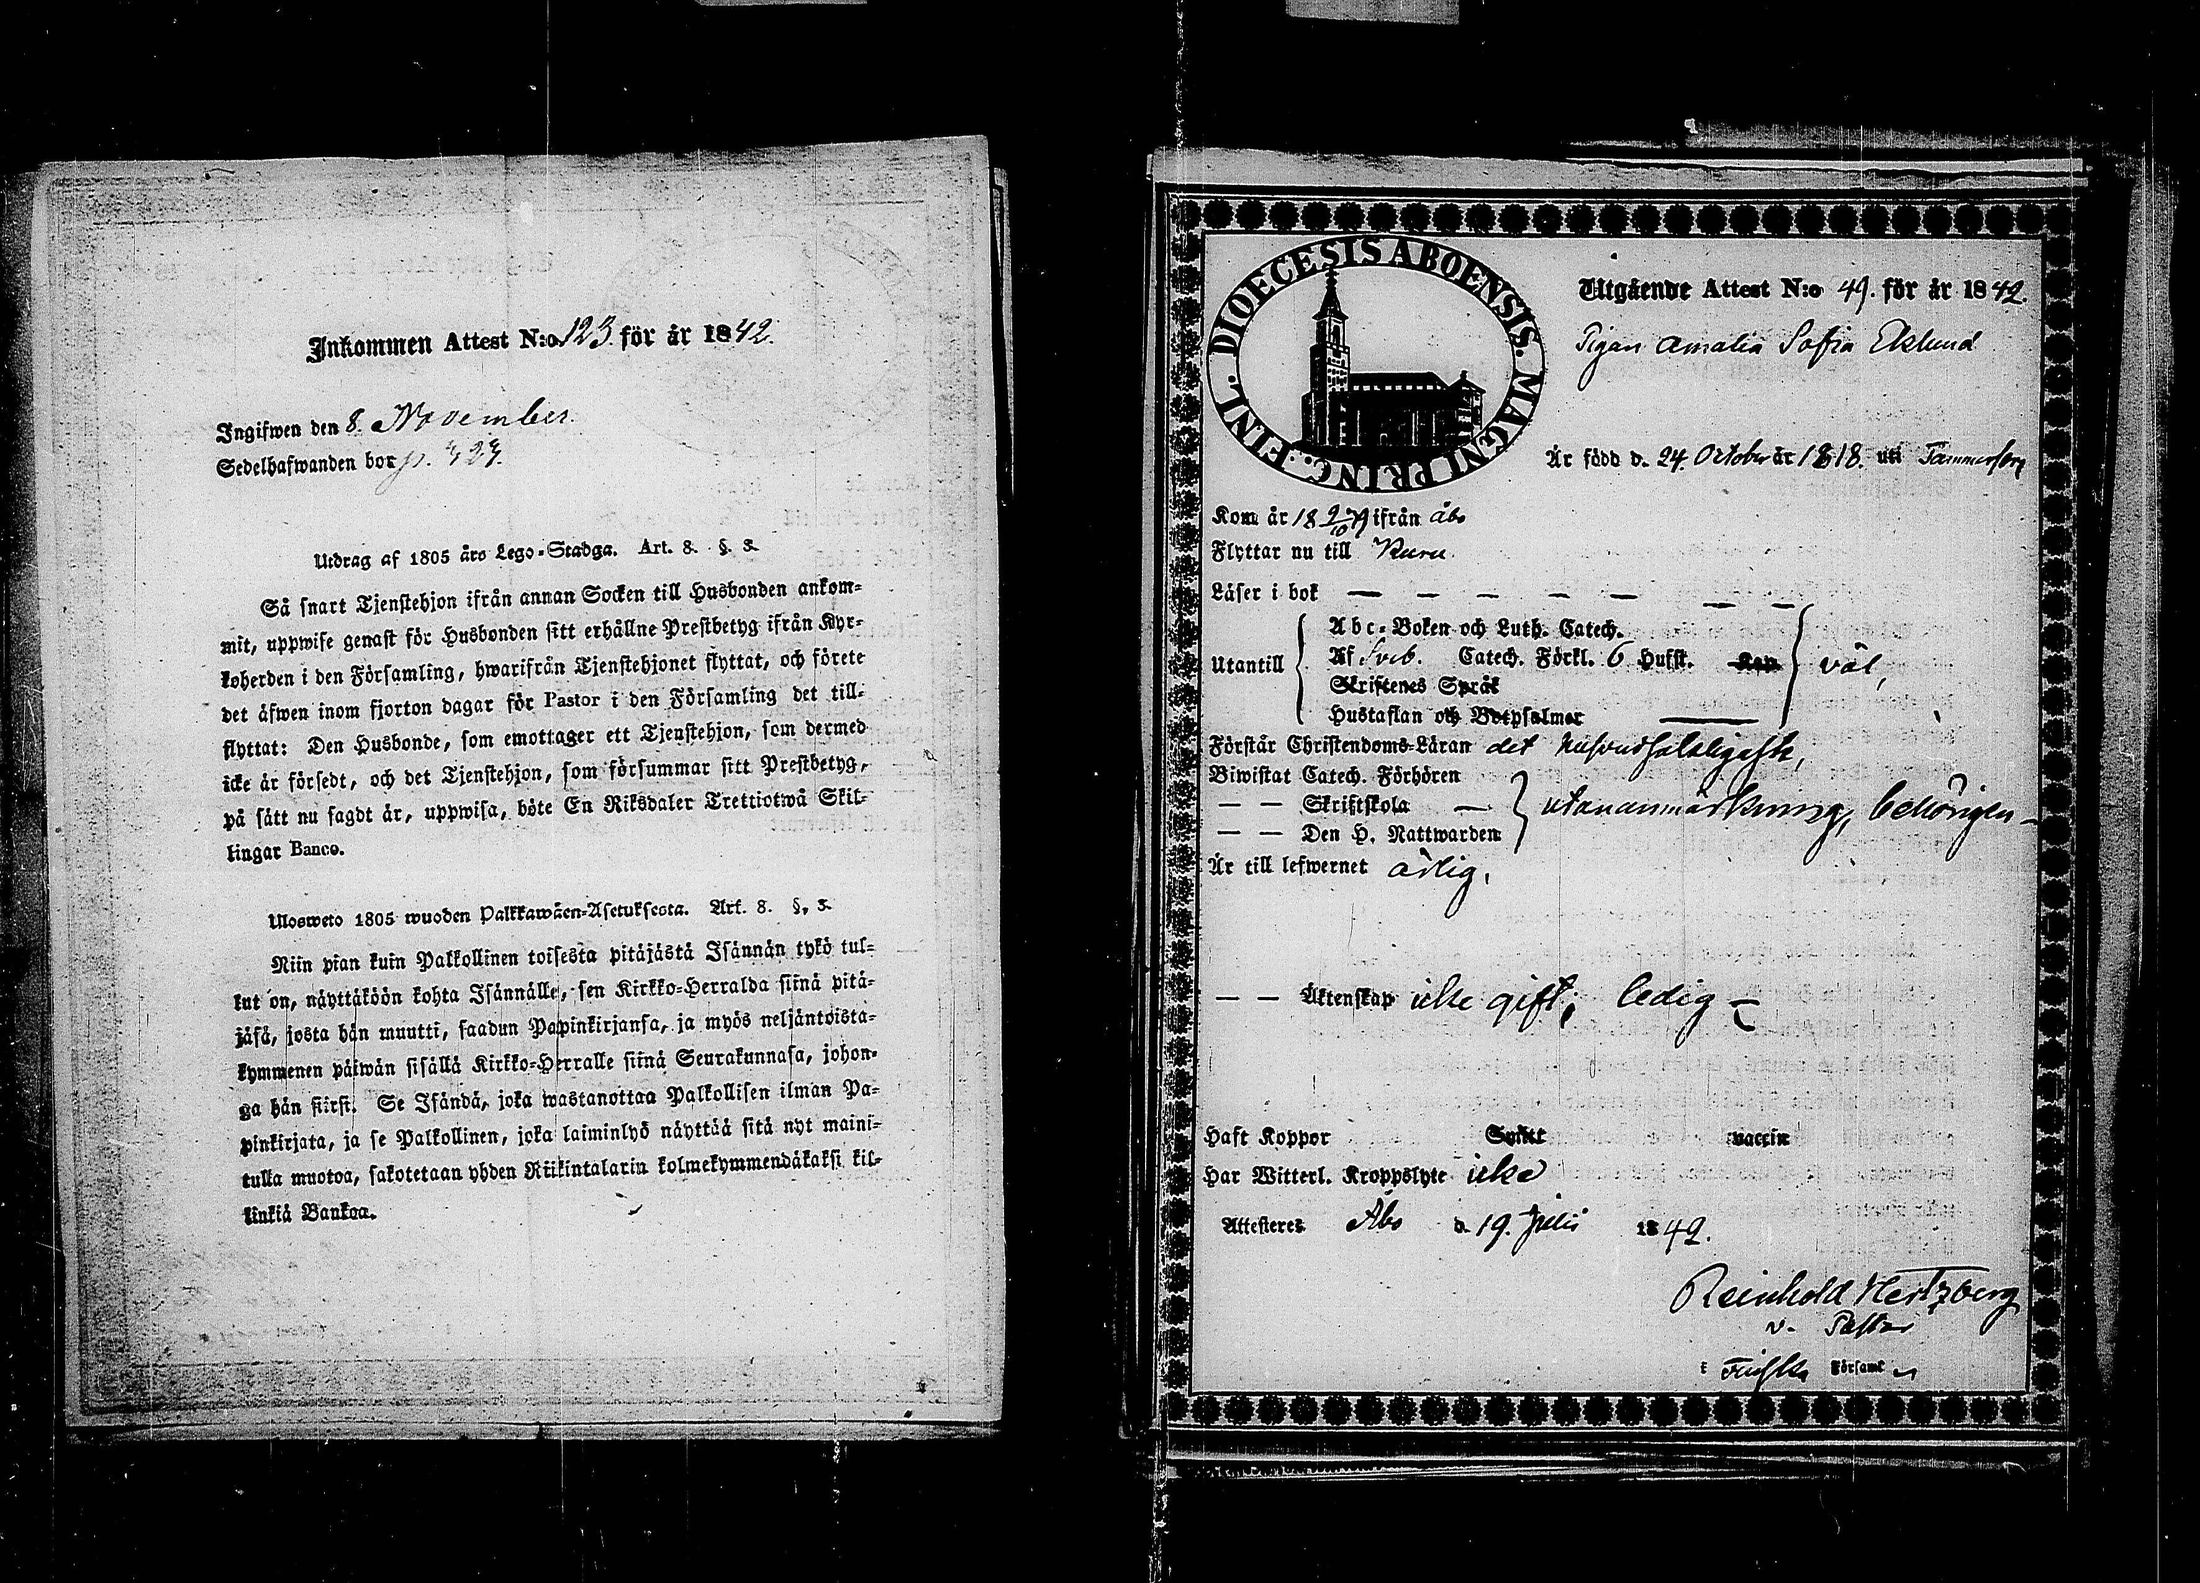 Inkommen Attest N:o 123 för år 1842.
Ingifwen den 8. November.
Sedelhafwanden bor p. 427.
Utdrag af 1805 års Lego-Stadga. Art. 8. §. 3.
Så snart Tjenstehjon ifrån annan Socken till Husbonden ankom-
mit, uppwise genast för Husbonden sitt erhållne Prestbetyg ifrån Kyr-
koherden i den Församling, hwarifrån Tjenstehjonet flyttat, och förete
det äfwen inom fjorton dagar för Pastor i den Församling det till-
flyttat: Den Husbonde, som emottager ett Tjenstehjon, som dermed
icke är försedt, och det Tjenstehjon, som försummar sitt Prestbetyg,
på sätt nu sagdt är, uppwisa, böte En Riksdaler Trettiotwå Skil-
lingar Banco.
Ulosweto 1805 wuoden Palkkawäen-Asetuksesta. Art. 8. §. 3.
Niin pian kuin Palkollinen toisesta pitäjästä Isännän tykö tul-
lut on, näyttäköön kohta Isännälle, sen Kirkko-Herralda siinä pitä-
jäsä, josta hän muutti, saadun Papinkirjansa, ja myös neljäntoista-
kymmenen päiwän sisällä Kirkko-Herralle siinä Seurakunnasa, johon-
ga hän siirsi. Se Isändä, joka wastanottaa Palkollisen ilman Pa-
pinkirjata, ja se Palkollinen, joka laiminlyö näyttää sitä nyt maini-
tulla muotoa, sakotetaan yhden Riikintalarin kolmekymmendäkaksi kil-
linkiä Bankoa.
FINL. DIOECESIS ABOENSIS. MAGNI PRINC.
Utgående Attest N:o 49. för år 1842.
Pigan Amalia Sofia Eklund
Är född d. 24. October år 1818. uti Tammerfors
Kom år 18 ifrån Åbo
Flyttar nu till Ruru.
Läser i bok — — — — — — —
Abc-Boken och Luth. Catech.
Utantill Af Sveb. Catech. Förkl. 6 Husst. Kap. väl,
Skriftenes Språk
Hustaflan och Botpsalmer
Förstår Christendoms-Läran det hufvudsakligaste,
Biwistat Catech. Förhören
— — Skriftskola — utan anmärkning, behörigen
— — Den H. Nattwarden
Är till lefwernet ärlig,
— — Äktenskap icke gift; ledig
Haft Koppor Smitt vaccin
Har Witterl. Kroppslyte icke
Attesteres Åbo d. 19. Julii 1842.
Reinhold Hertzberg
v. Pastor
i Finska Församl